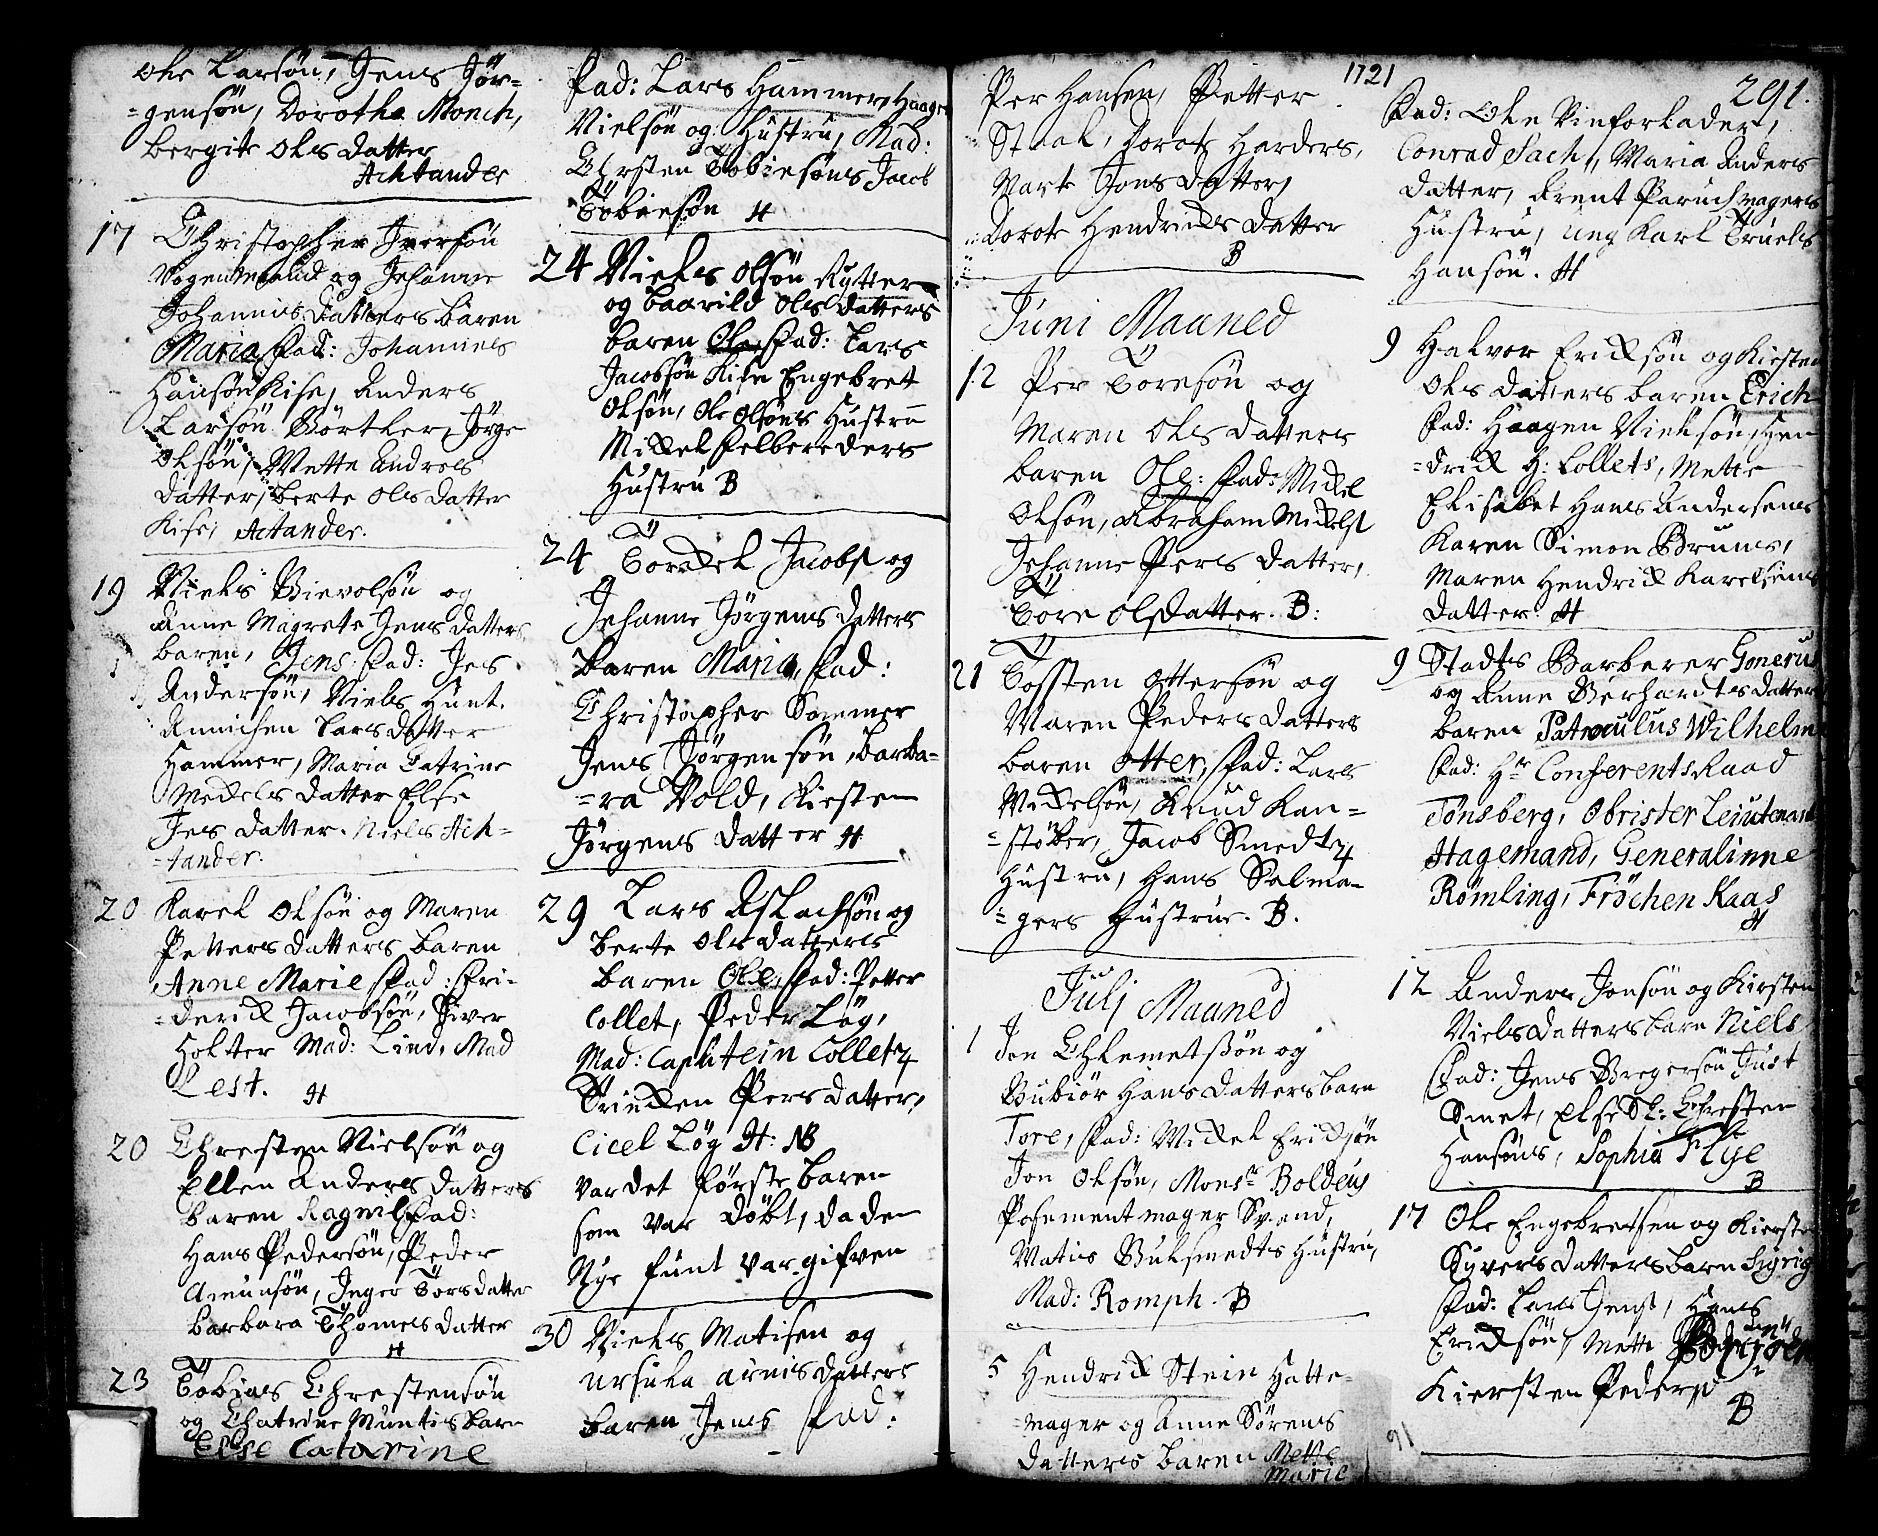 Ole Larsøn, Jens Jør-
=gensøn, Dorothe Monch,
bergite Ols datter
Achtander
17 Christopher Iversøn
og Johanne
Johannis datters baren
Maria, Fad: Johannis
Hansøn Kise, Anders
Larsøn Børtler, Jørge
Olsøn, Mette Andres
datter, berte Ols datter
Kise, Actander.
19 Niels Bievolsøn og
Anne Magrete Jens datters
baren, Jens, Fad: Jes
Andersøn, Niels Hunt.
Annichen Lars datter
Hammer, Maria Catrine
Mekels datter Else
Jes datter. Niels Ach=
=tander.
20 Karel Olsøn og Maren
Petters datters baren
Anne Marie, Fad: Fri-
=derick Jacobsøn, Siver
Holter Mad: Lind, Mad
Lest. H
20 Chresten Nielsøn og
Ellen Anders datters
baren Ragnil, Fad:
Hans Pedersøn, Peder
Amunsøn, Inger Tors datter
barbara Thomes datter
H
23 Tobias Chrestensøn
og Chatrine Muntis barn
Else Catarine
Fad: Lars Hammer, Haagen
Nielsøn og Hustru, Mad:
Chrsten Tobiesøns Jacob
Tobiesøn H
24 Niels Olsøn Rytter
og baarild Ols datters
baren Ole, Fad: Lars
Jacobsøn Kise Engebret
Olsøn, Ole Olsøns Hustru
Mikkel Felbereders
Hustru B
24 Torkel Jacobs og
Johanne Jørgens datters
baren Maria, Fad:
Christopher Sommer
Jens Jørgensøn, barba=
=ra Vold, Kiesten
Jørgens datter H
29 Lars Aslachsøn og
berte Ols datters
baren Ole, Fad: Petter
Collet, Peder Løg,
Mad: Captein Colletz
Trinken Pers datter,
Cicel Løg H: NB
var det første baren
som var døbt, da den
Nye funt var gifven
30 Niels Matisen og
Ursula Arnis datters
baren Jens Fad:
1721
Per Hansen, Petter
Staal, Dorote Harders,
Marte Jons datter,
Dorote Hendricks datter
B
Juni Maaned
12 Per Toresøn og
Maren Ols datters
baren Ole: Fad: Mickel
Olsøn, Abraham Mickels
Johanne Pers datter,
Tore Olsdatter. B:
21 Tossten Ottersøn og
Maren Peders datters
baren Otter, Fad: Lars
Mickelsøn, Knud Kan=
=støber, Jacob Smedtz
Hustru, Hans Salma-
=gers Hustrue. B.
Julj Maaned
1 Jon Chlemetsøn og
Hans datters barn
Tore, Fad: Mickel Ericksøn
Jon Olsøn, Monsr Boldeus
Posementmager Svend,
Matis Buksmedts Hustru,
Mad: Romph. B
5 Hendrik Stein Hatte-
=mager og Anne Sørens
datters baren Mette
Marie
291.
Fad: Ole Vinforlader,
Conrad Sach, Maria Anders
datter, Arent Paruchmagers
Hustru, Ung Karl Truels
Hansøn. H
9 Halvor Ericksøn og Kiersten
Ols datters baren Erich
Fad: Haagen Nielsøn, Hen
=drick H: Collets, Mette
Elisabet Hans Andersens
Karen Simon Bruuns,
Maren Hendrick Karelsens
datter H
9 Stadts Barberer Gonerus
og Anne Gerhardtsdatter
baren Patroculus Wilhelm
Fad: Hr Conferents Raad
Tønsberg, Obrister Leiutenant
Hagemand, Generalinne
Rømling, Frøchen Kaas
H
12 Anders Jonsøn og Kirsten
Niels datters barn Niels
Fad: Jens Bregersøn Just
Smet, Else Sl: Chresten
Hansøns, Sophia Flye
B
17 Ole Engebretsen og Kiersten
Syvers datters barn Sigrig
Fad: Lars Jens, Hans
Ericksøn, Mette
Kiersten Peders
B
91